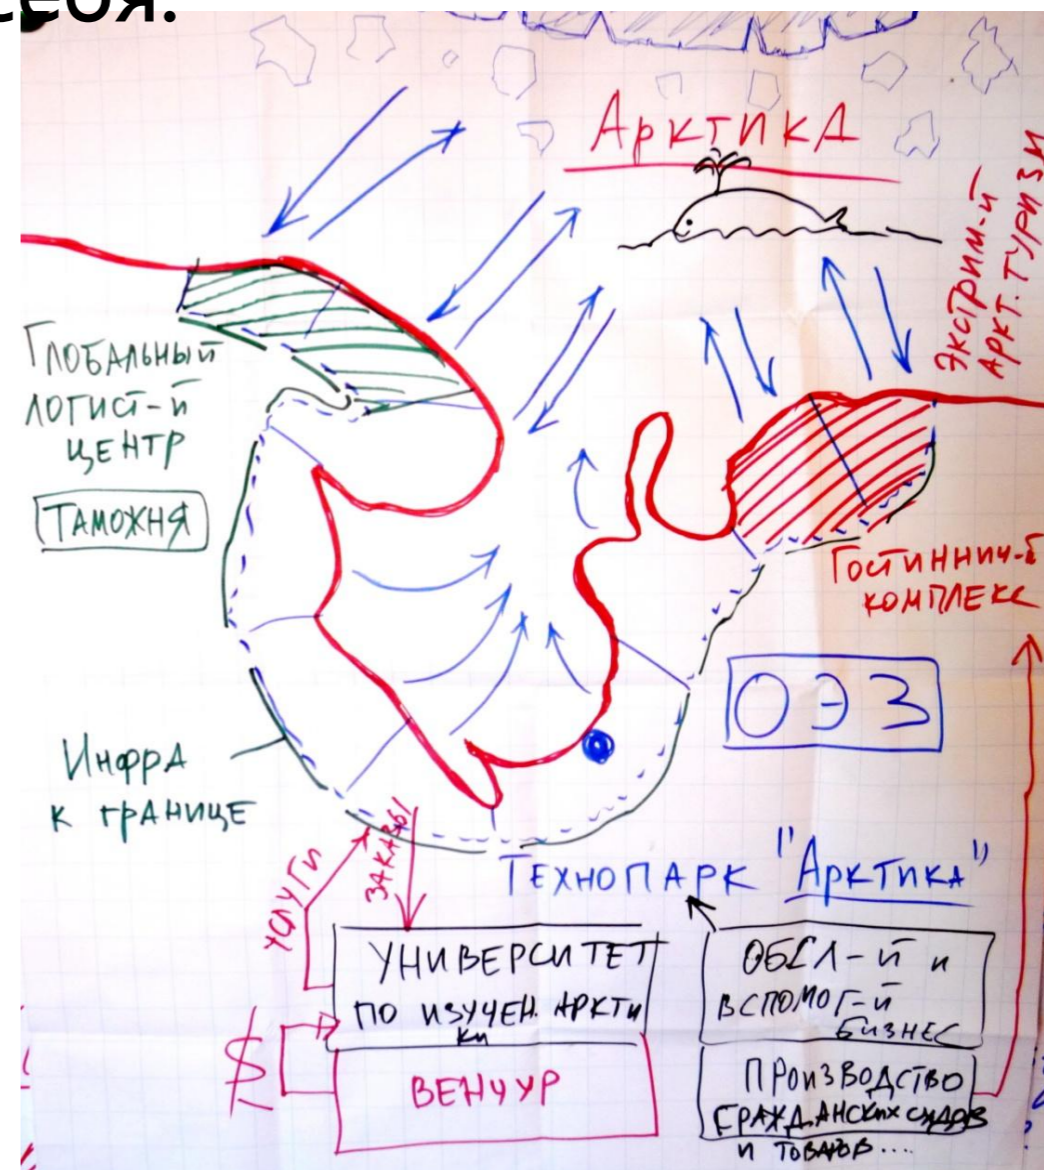 себя.
Арктика
Экстрим-й
Аркт. туризм
Глобальный
логист-й
центр
Таможня
Гостиннич-й
комплекс
ОЭЗ
Инфра
к границе
услуги
заказы
Технопарк "Арктика"
Университет
по изучен. Аркти
ки
$
Венчур
Обсл-й и
вспомог-й
бизнес
Производство
гражданских судов
и товаров....